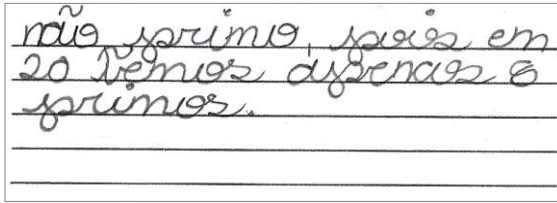 não primo, pois em
20 temos apenas 8
primos.